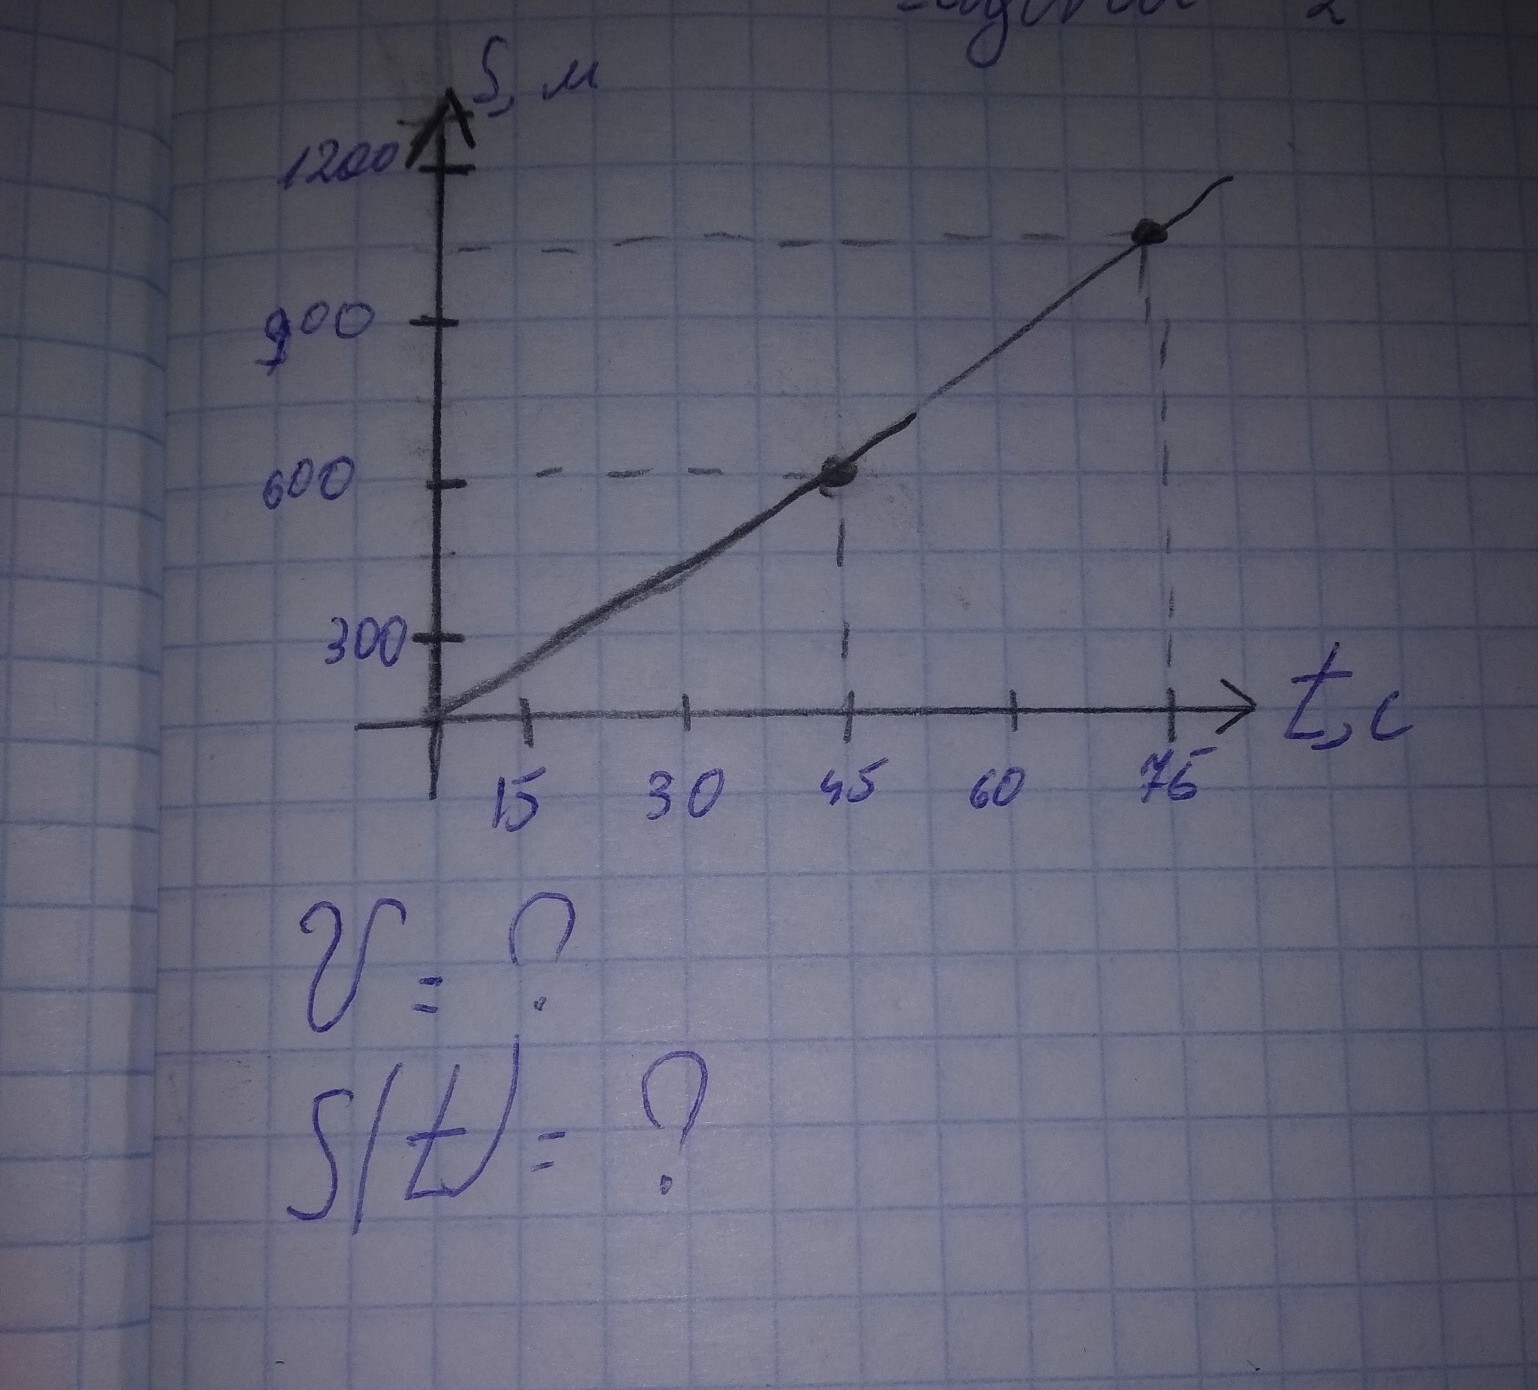 2
S, м
1200
900
600
300
t, с
15 30 45 60 75
V = ?
S(t) = ?